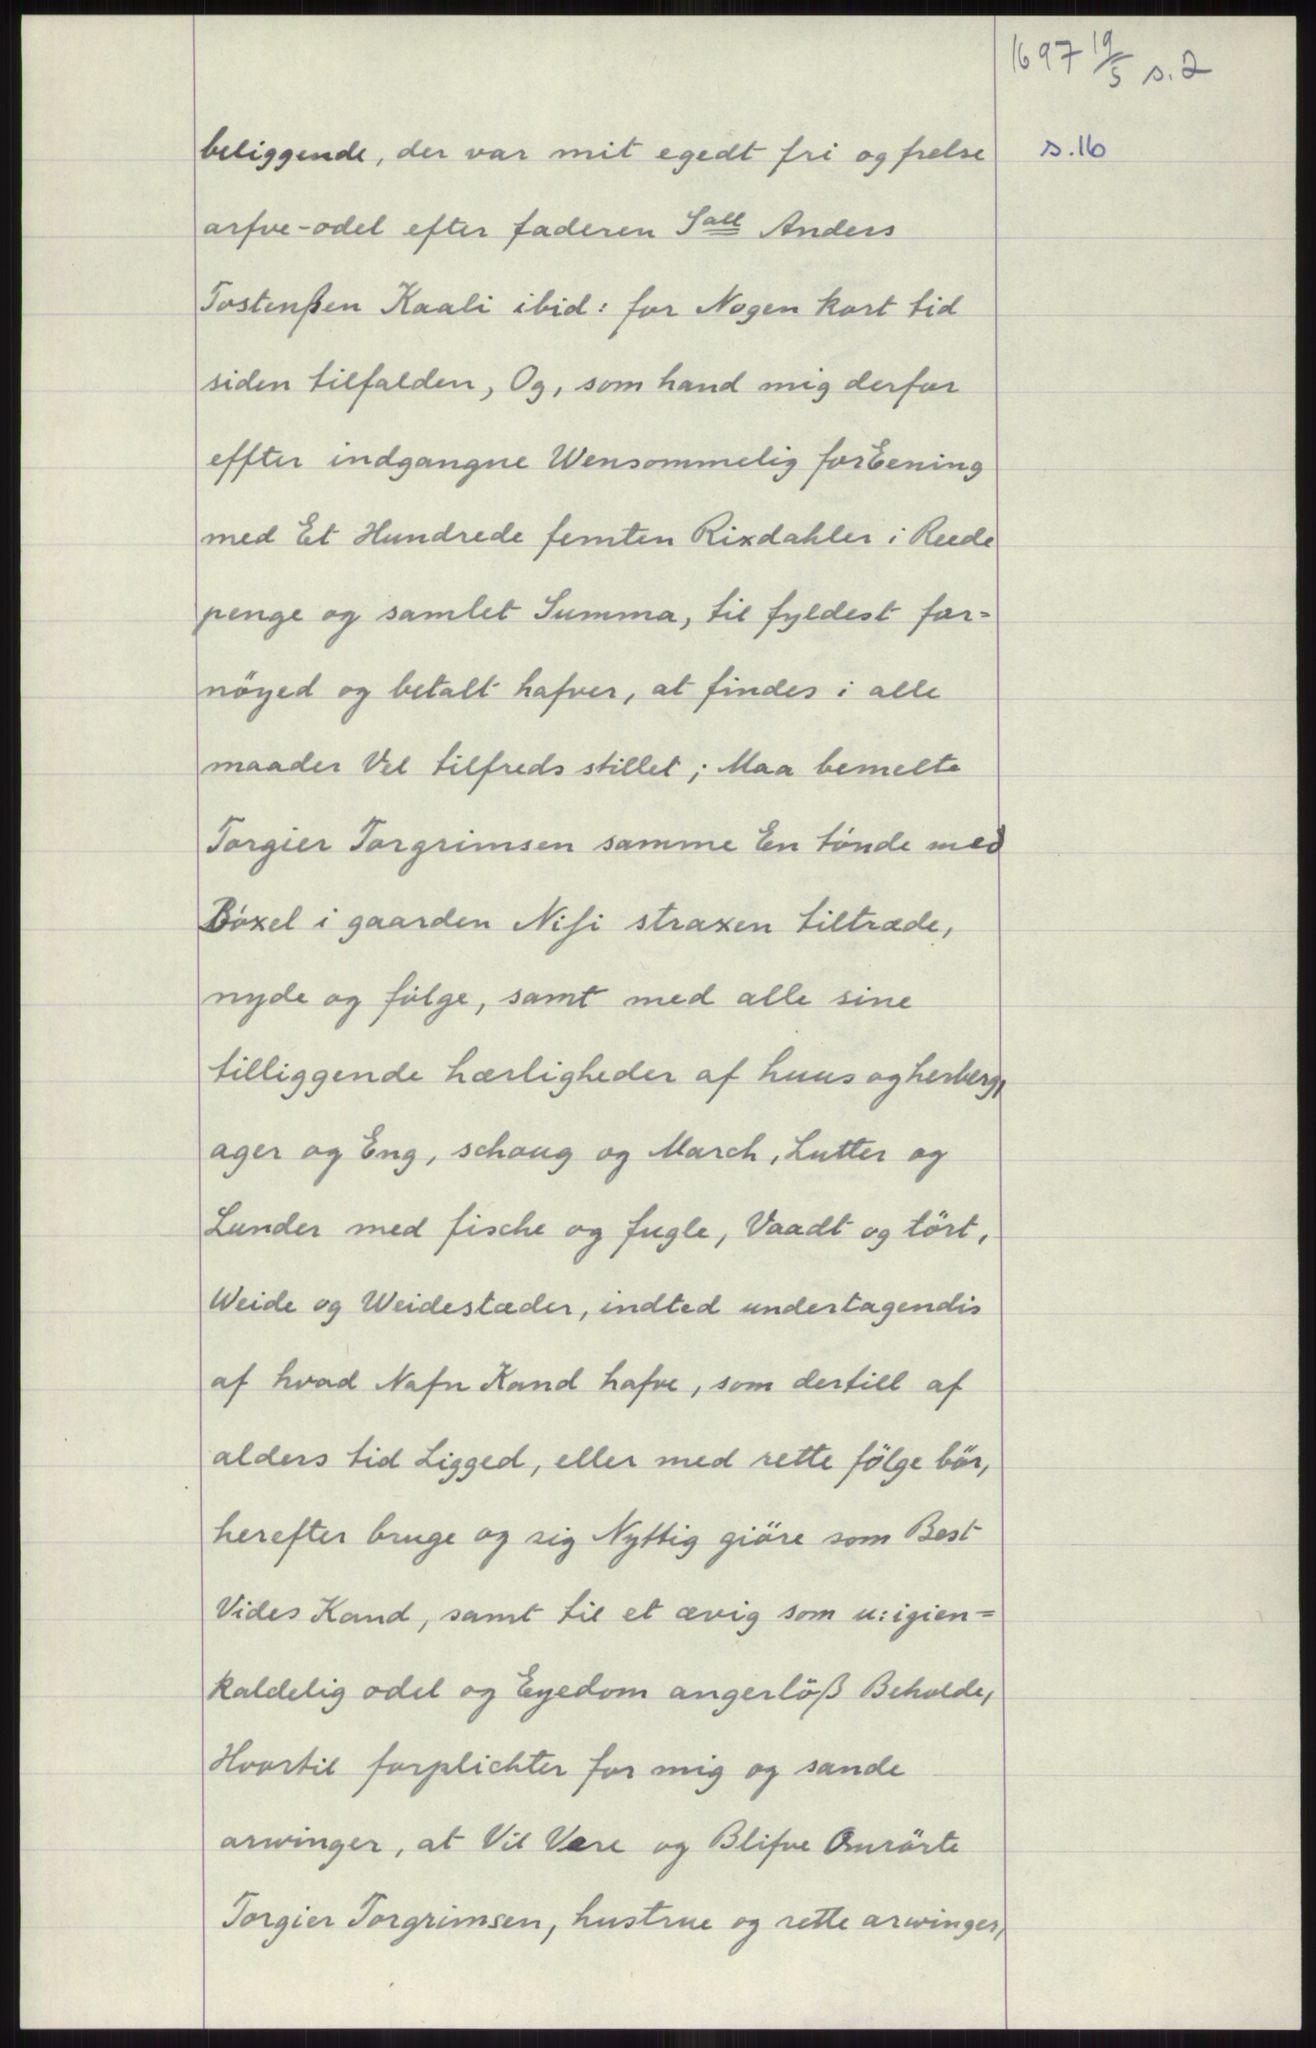 1697 19/5 s.2
beliggende, der var mit egedt fri og frelse
s.16
arfve-odel efter faderen Sall Anders
Tostenßen Kaali ibid: for Nogen kort tid
siden tilfalden, Og, som hand mig derfor
effter indgangne Wensommelig forEening
med Et Hundrede femten Rixdahler i Reede
penge og samlet Summa, til fyldest for=
nöyed og betalt hafver, at findes i alle
maader Vel tilfreds stillet; Maa bemelte
Torgier Torgrimsen samme En tönde med
Böxel i gaarden Nisi straxen tiltræde,
nyde og fölge, samt med alle sine
tilliggende hærligheder af huus og herberg,
ager og Eng, schoug og March, Lutter og
Lunder med fische og fugle, Vaadt og tört,
Weide og Weidestæder, indted undertagendis
af hvad Nafn Kand hafve, som dertill af
alders tid Ligged, eller med rette fölge bör,
herefter bruge og sig Nyttig giöre som Best
Vides Kand, samt til et ævig som u:igien=
kaldelig odel og Eyedom angerlöß Beholde,
Hvortil forplichter for mig og sande
arwinger, at Vil Være og Blifve Omrörte
Torgier Torgrimsen, hustrue og rette arwinger,